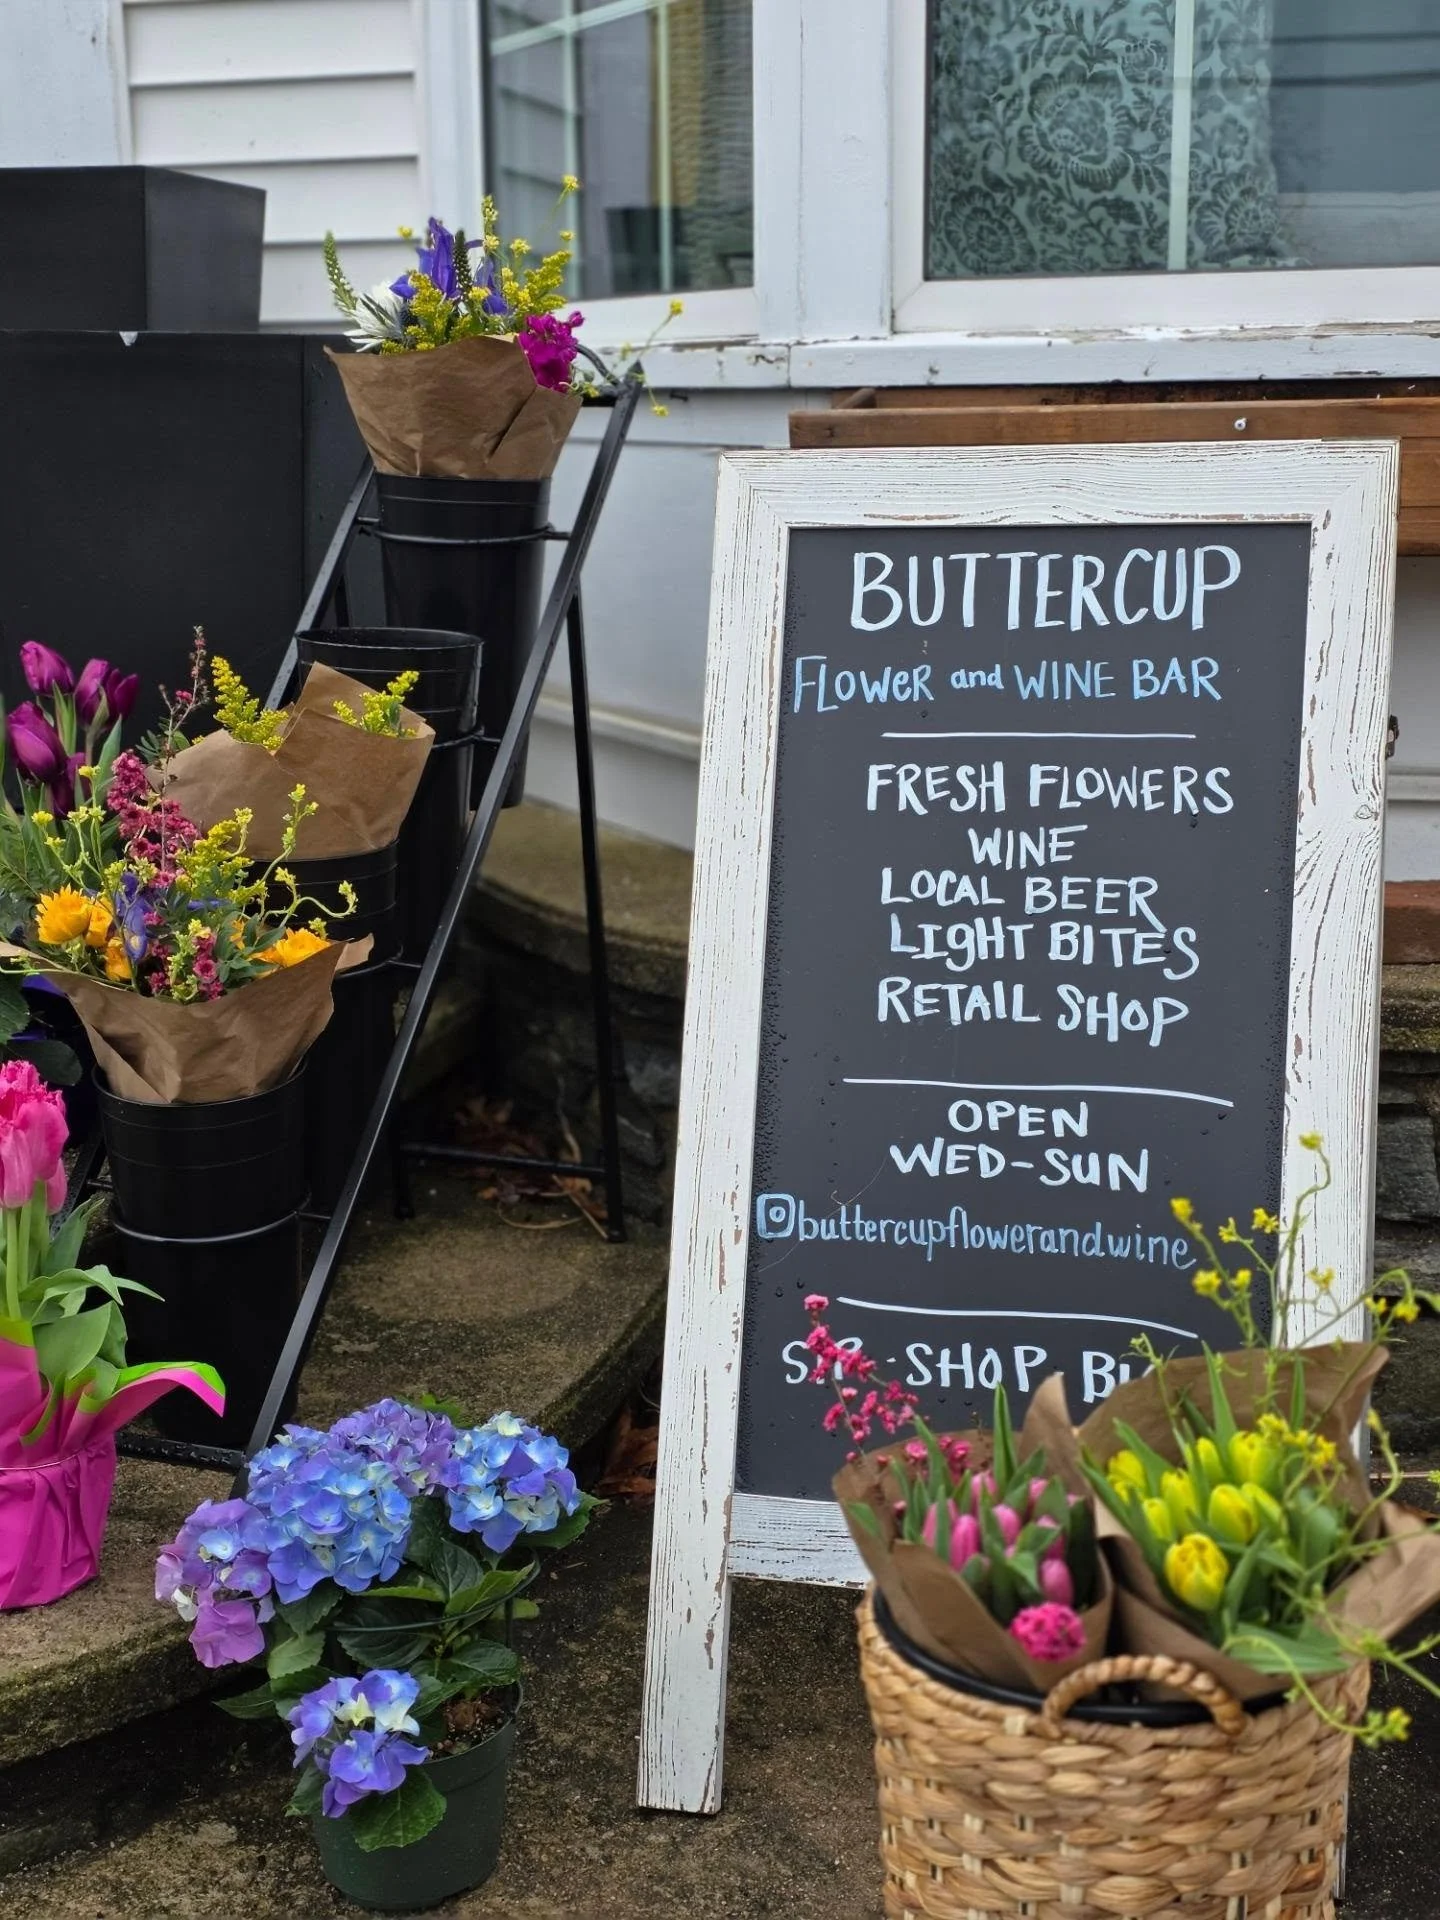 BUTTERCUP
FLOWER and WINE BAR
FRESH FLOWERS
WINE
LOCAL BEER
LIGHT BITES
RETAIL SHOP
OPEN
WED-SUN
buttercupflowerandwine
SHOP